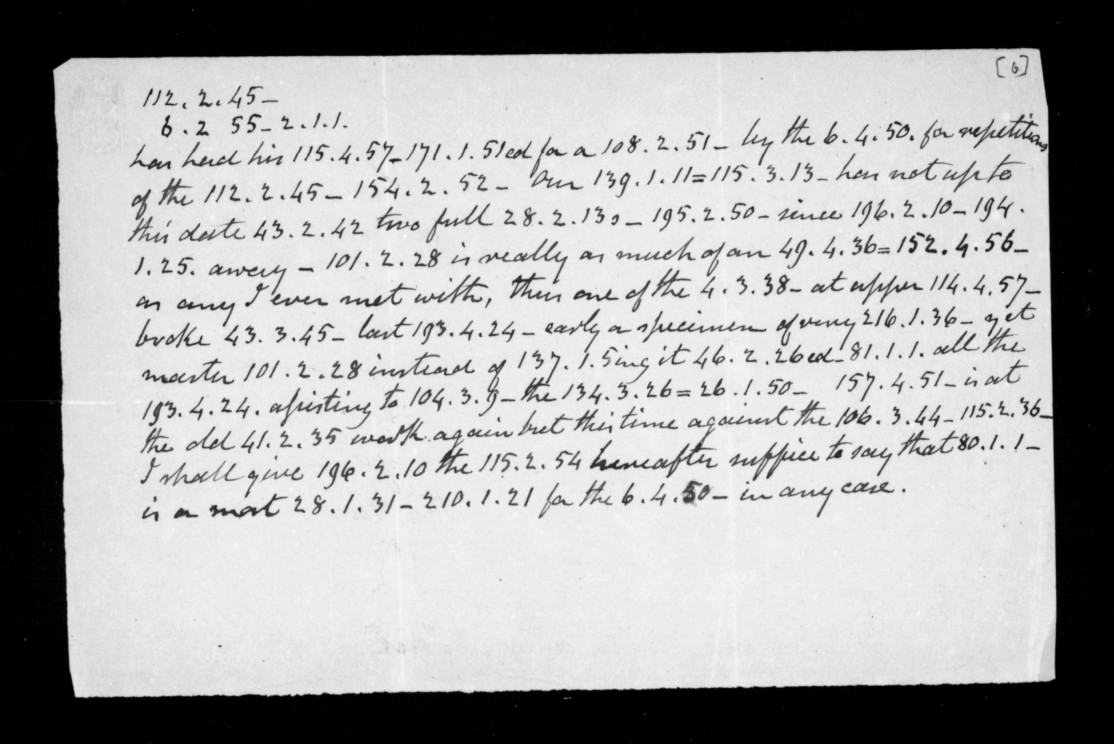 [6]
112.2.45-
6.2 55-2.1.1.
has had his 115.4.57-171.1.51ed for a 108.2.51- by the 6.4.50. for repetitions
of the 112.2.45- 154.2.52- Our 139.1.11=115.3.13- has not up to
this date 43.2.42 two full 28.2.13s- 195.2.50- since 196.2.10-194.
1.25. away - 101.2.28 is really as much of an 49.4.36=152.4.56-
as any I ever met with, thus one of the 4.3.38- at upper 114.4.57-
broke 43.3.45- last 193.4.24- early a specimen of very 216.1.36- yet
master 101.2.28 instead of 137.1.5ing it 46.2.26ed-81.1.1. all the
193.4.24. assisting to 104.3.9- the 134.3.26=26.1.50- 157.4.51- is at
the old 41.2.35 work again but this time against the 106.3.44-115.2.36-
I shall give 196.2.10 the 115.2.54 hereafter suffice to say that 80.1.1-
is a most 28.1.31-210.1.21 for the 6.4.50- in any case.